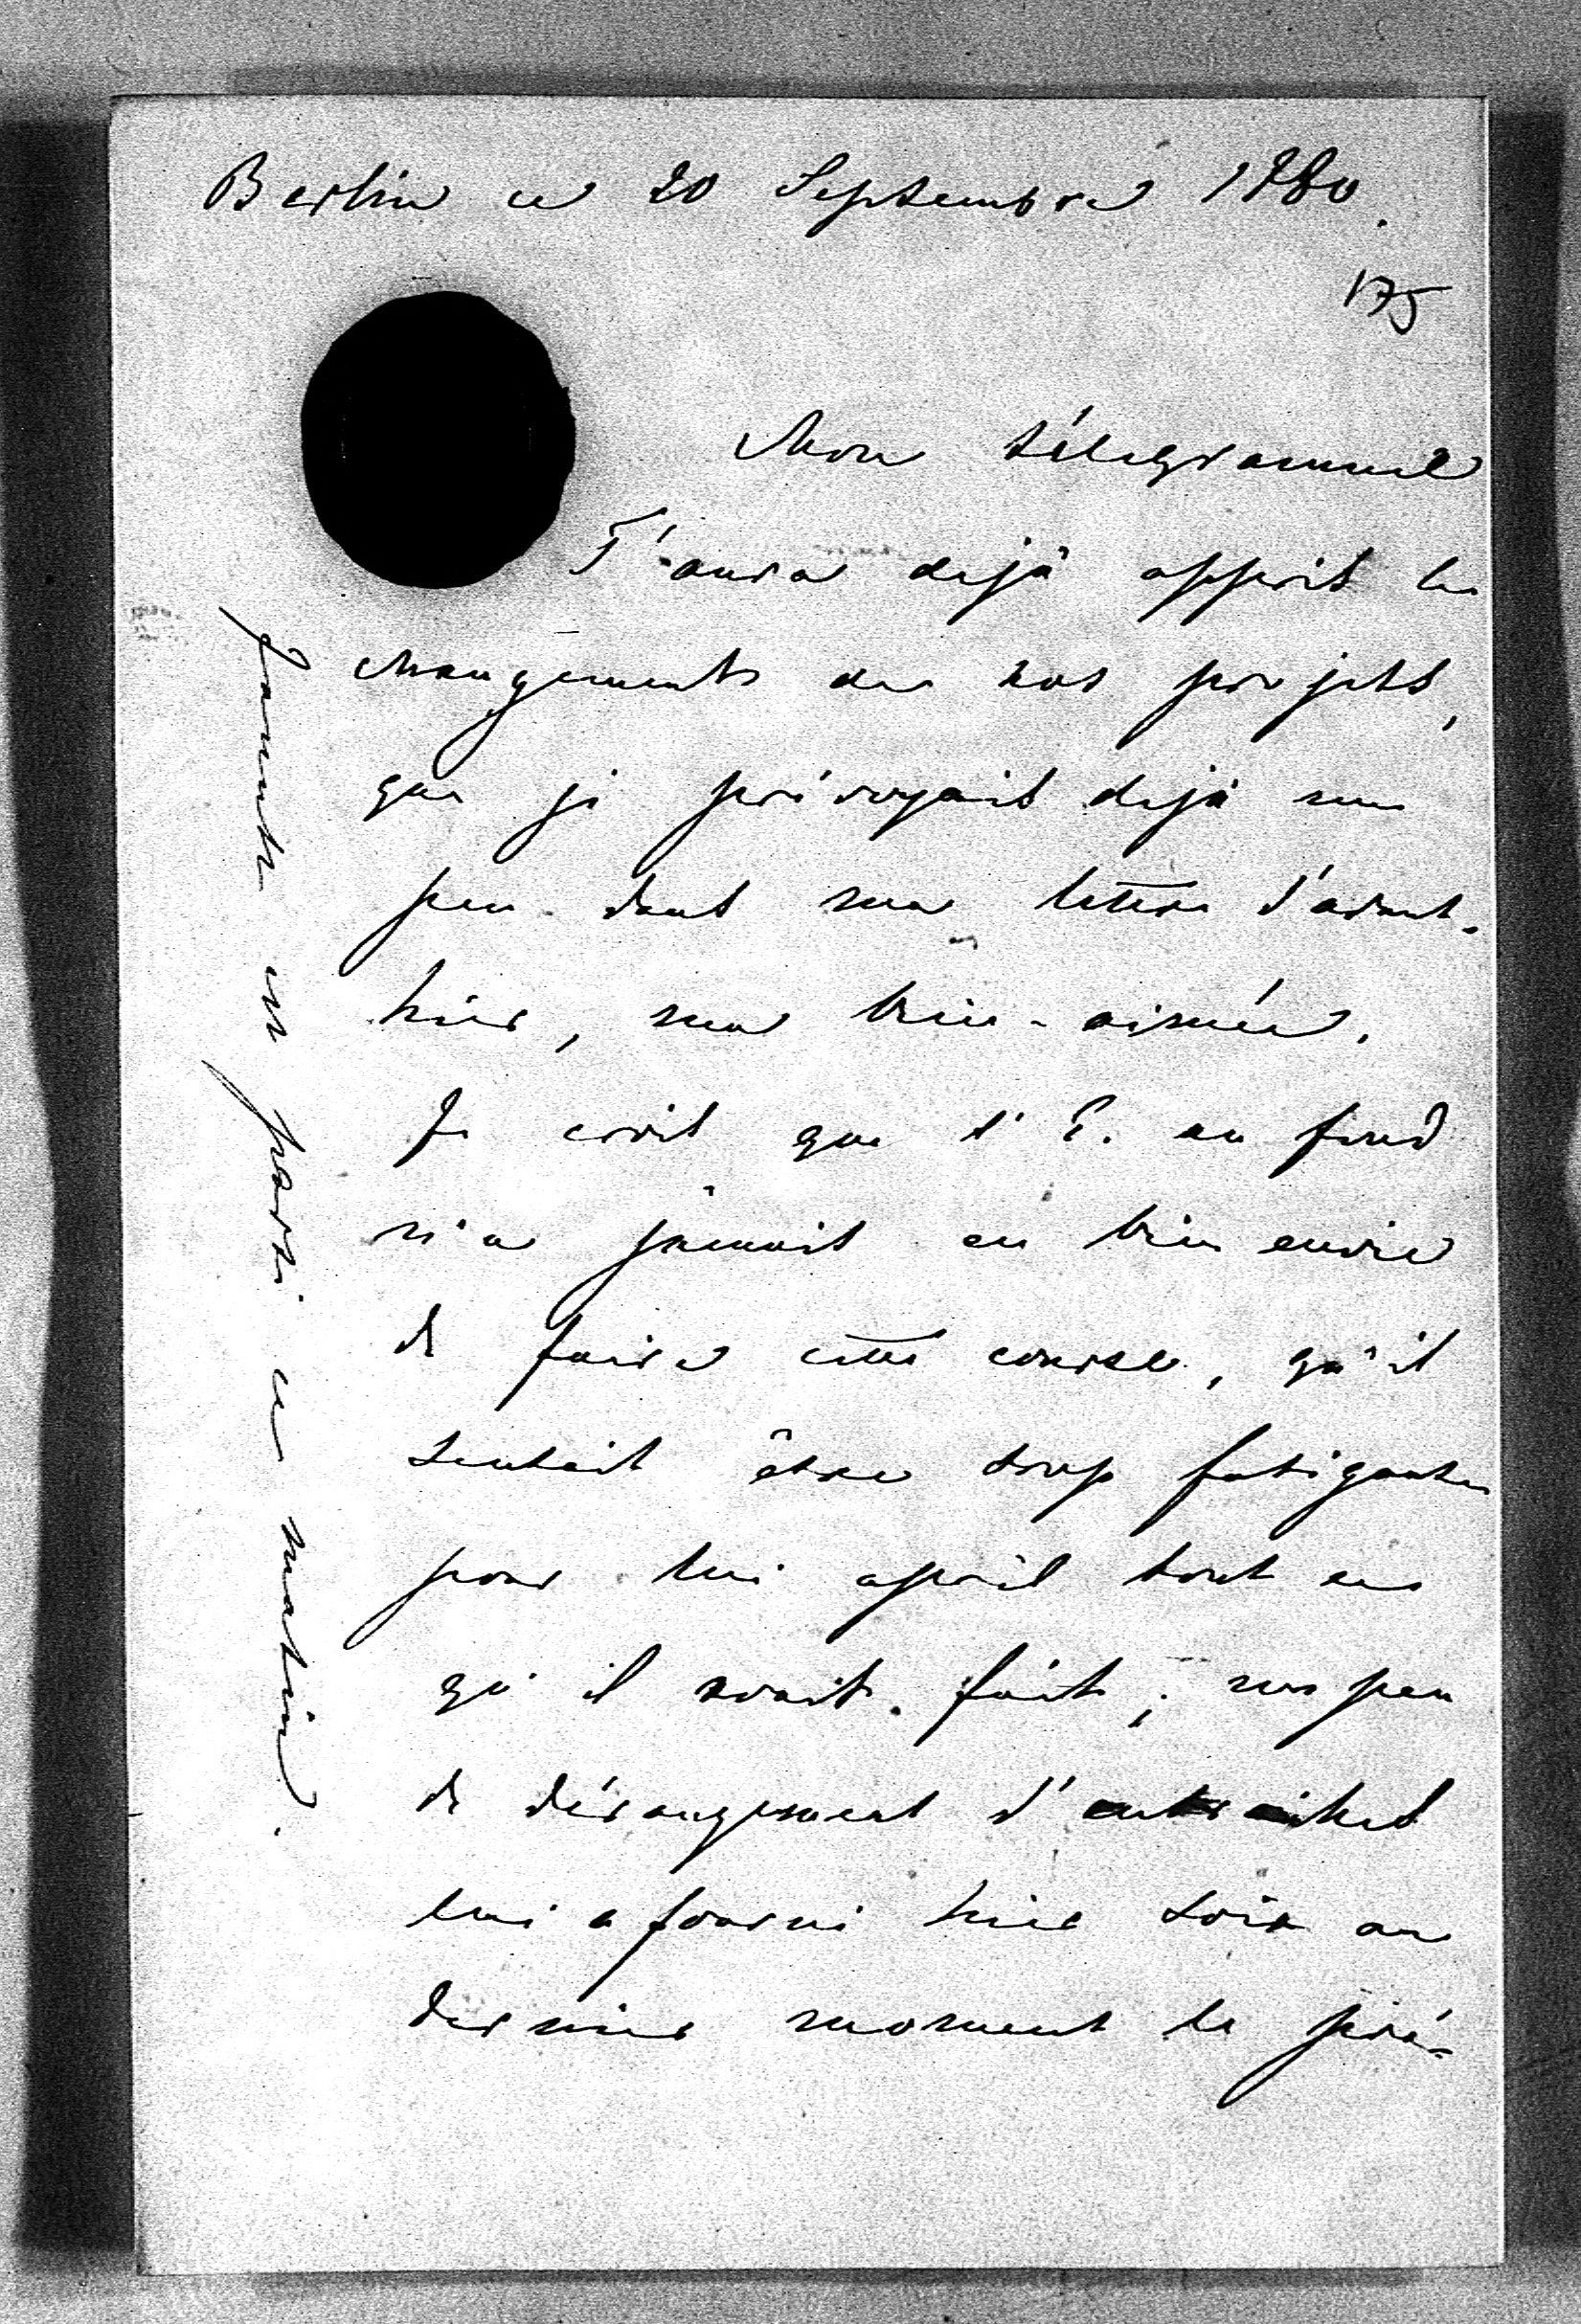 Berlin ce 20 Septembre 1880.
175
Mon télegramme
T'aura dejà apprit les
changements de nos projets,
que je prévoyait dejà un
peu dans ma lettre d'avant-
hier, ma bien-aimée.
Je croit que l'E. au fond
n'a jamais eu bien envie
de faire cette course, qu'il
sentait être trop fatigante
pour lui après tout ce
qu'il avait fait; un peu
de dérangement d'entrailles
lui a fourni hier soir au
dernier moment le pré-
est parti ce matin.